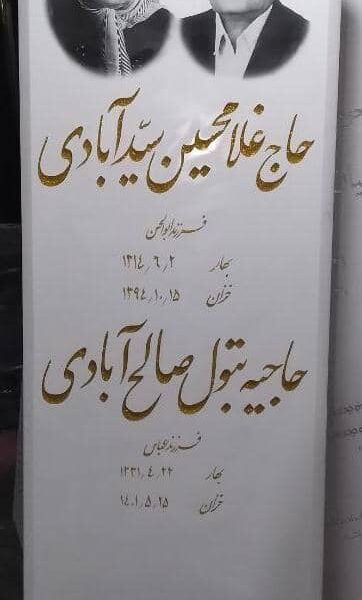 حاج غلامحسین سیّدآبادی
فرزند ابوالحسن
بهار ۱۳۱۴٫۶٫۲
خزان ۱۳۹۴٫۱۰٫۱۵
حاجیه بتول صالح آبادی
فرزند عباس
بهار ۱۳۳۱٫۴٫۲۲
خزان ۱۴۰۱٫۵٫۲۵